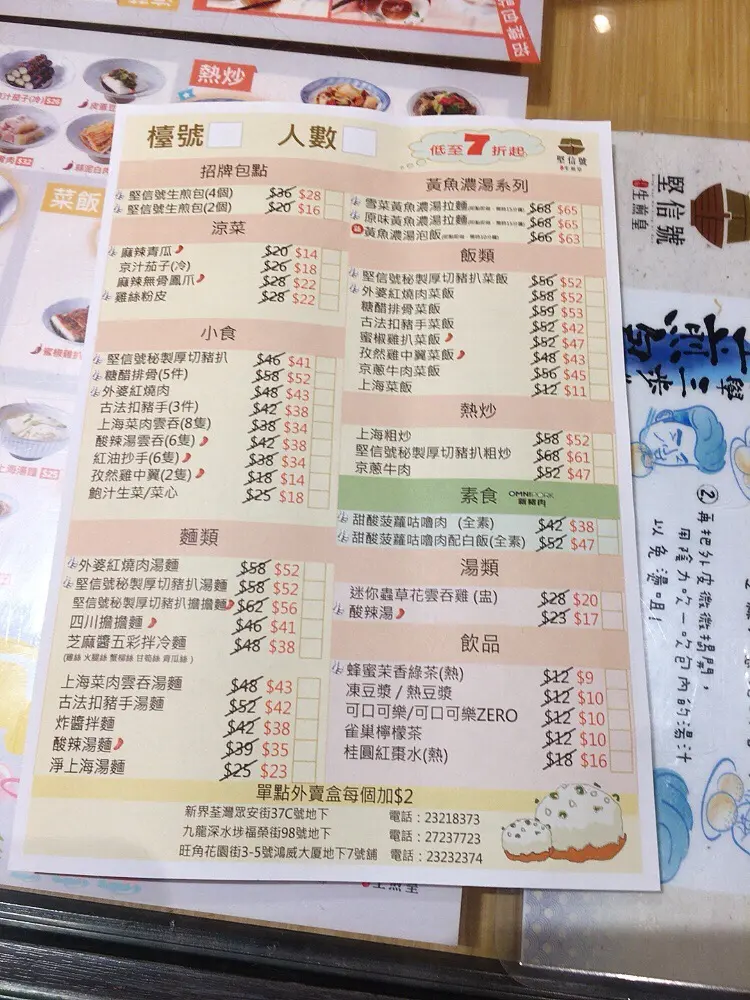 熱炒
$26
$32
菜飯
$25
檯號
人數
低至7折起
堅信號
生煎皇
招牌包點
堅信號生煎包(4個) $36 $28
堅信號生煎包(2個) $20 $16
涼菜
麻辣青瓜 $20 $14
京汁茄子(冷) $26 $18
麻辣無骨鳳爪 $28 $22
雞絲粉皮 $28 $22
小食
堅信號秘製厚切豬扒 $46 $41
糖醋排骨(5件) $58 $52
外婆紅燒肉 $48 $43
古法扣豬手(3件) $42 $38
上海菜肉雲吞(8隻) $38 $34
酸辣湯雲吞(6隻) $42 $38
紅油抄手(6隻) $38 $34
孜然雞中翼(2隻) $18 $14
鮑汁生菜/菜心 $25 $18
麵類
外婆紅燒肉湯麵 $58 $52
堅信號秘製厚切豬扒湯麵 $58 $52
堅信號秘製厚切豬扒擔擔麵 $62 $56
四川擔擔麵 $46 $41
芝麻醬五彩拌冷麵 $48 $38
(雞絲 火腿絲 蟹柳絲 甘筍絲 青瓜絲)
上海菜肉雲吞湯麵 $48 $43
古法扣豬手湯麵 $52 $42
炸醬拌麵 $42 $38
酸辣湯麵 $39 $35
淨上海湯麵 $25 $23
黃魚濃湯系列
雪菜黃魚濃湯拉麵 $68 $65
原味黃魚濃湯拉麵 $68 $65
黃魚濃湯泡飯 $66 $63
飯類
堅信號秘製厚切豬扒菜飯 $56 $52
外婆紅燒肉菜飯 $58 $52
糖醋排骨菜飯 $59 $53
古法扣豬手菜飯 $52 $42
蜜椒雞扒菜飯 $52 $47
孜然雞中翼菜飯 $48 $43
京蔥牛肉菜飯 $56 $45
上海菜飯 $12 $11
熱炒
上海粗炒 $58 $52
堅信號秘製厚切豬扒粗炒 $68 $61
京蔥牛肉 $52 $47
素食 OMNIPORK 新豬肉
甜酸菠蘿咕嚕肉 (全素) $42 $38
甜酸菠蘿咕嚕肉配白飯(全素) $52 $47
湯類
迷你蟲草花雲吞雞 (盅) $28 $20
酸辣湯 $23 $17
飲品
蜂蜜茉香綠茶(熱) $12 $9
凍豆漿 / 熱豆漿 $12 $10
可口可樂/可口可樂ZERO $12 $10
雀巢檸檬茶 $12 $10
桂圓紅棗水(熱) $18 $16
單點外賣盒每個加$2
新界荃灣眾安街37C號地下 電話：23218373
九龍深水埗福榮街98號地下 電話：27237723
旺角花園街3-5號鴻威大廈地下7號舖 電話：23232374
堅信號
生煎皇
②再把外皮微微揭開，
用陰力吹一吹包內的湯汁
以免燙咀！